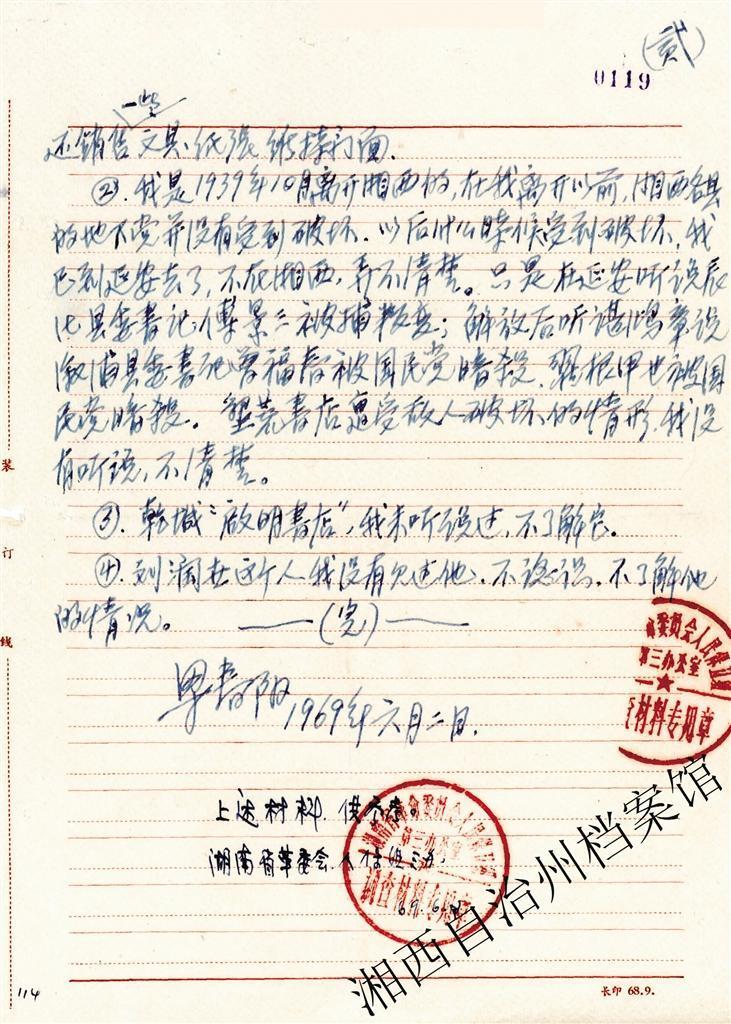 (贰)
0119
一些
还销售文具、纸张维持门面.
②. 我是1939年10月离开湘西的,在我离开以前,湘西各县
的地下党并没有受到破坏. 以后什么时候受到破坏,我
已到延安去了,不在湘西,弄不清楚。只是在延安听说
县委书记傅景三被捕叛变;解放后听谌鸿章说
溆浦县委书记曾福春被国民党暗殺、根甲也被国
民党暗殺。垦荒书店遭受敌人破坏的情形,我没
有听说,不清楚。
③. 乾城“啟明书店”,我未听说过,不了解它.
④. 刘澜在这个人我没有见过他、不认识、不了解他
的情况。——(完)——
春阳 1969年六月二日.
委员会人民保卫组
第三办公室
材料专用章
上述材料供参考。
湖南省革委会人保组三办
委员会人民保卫组
第三办公室
调查材料专用章
69.6.
装
订
线
114
长印 68.9.
湘西自治州档案馆